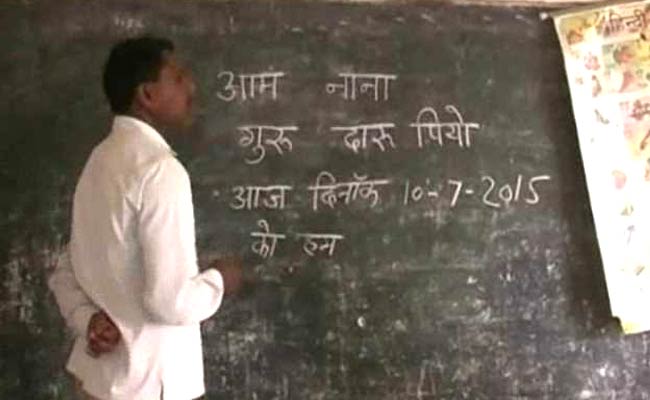 हिन्दी
आम नाना
गुरू दारू पियो
आज दिनाँक 10-7-2015
को हम